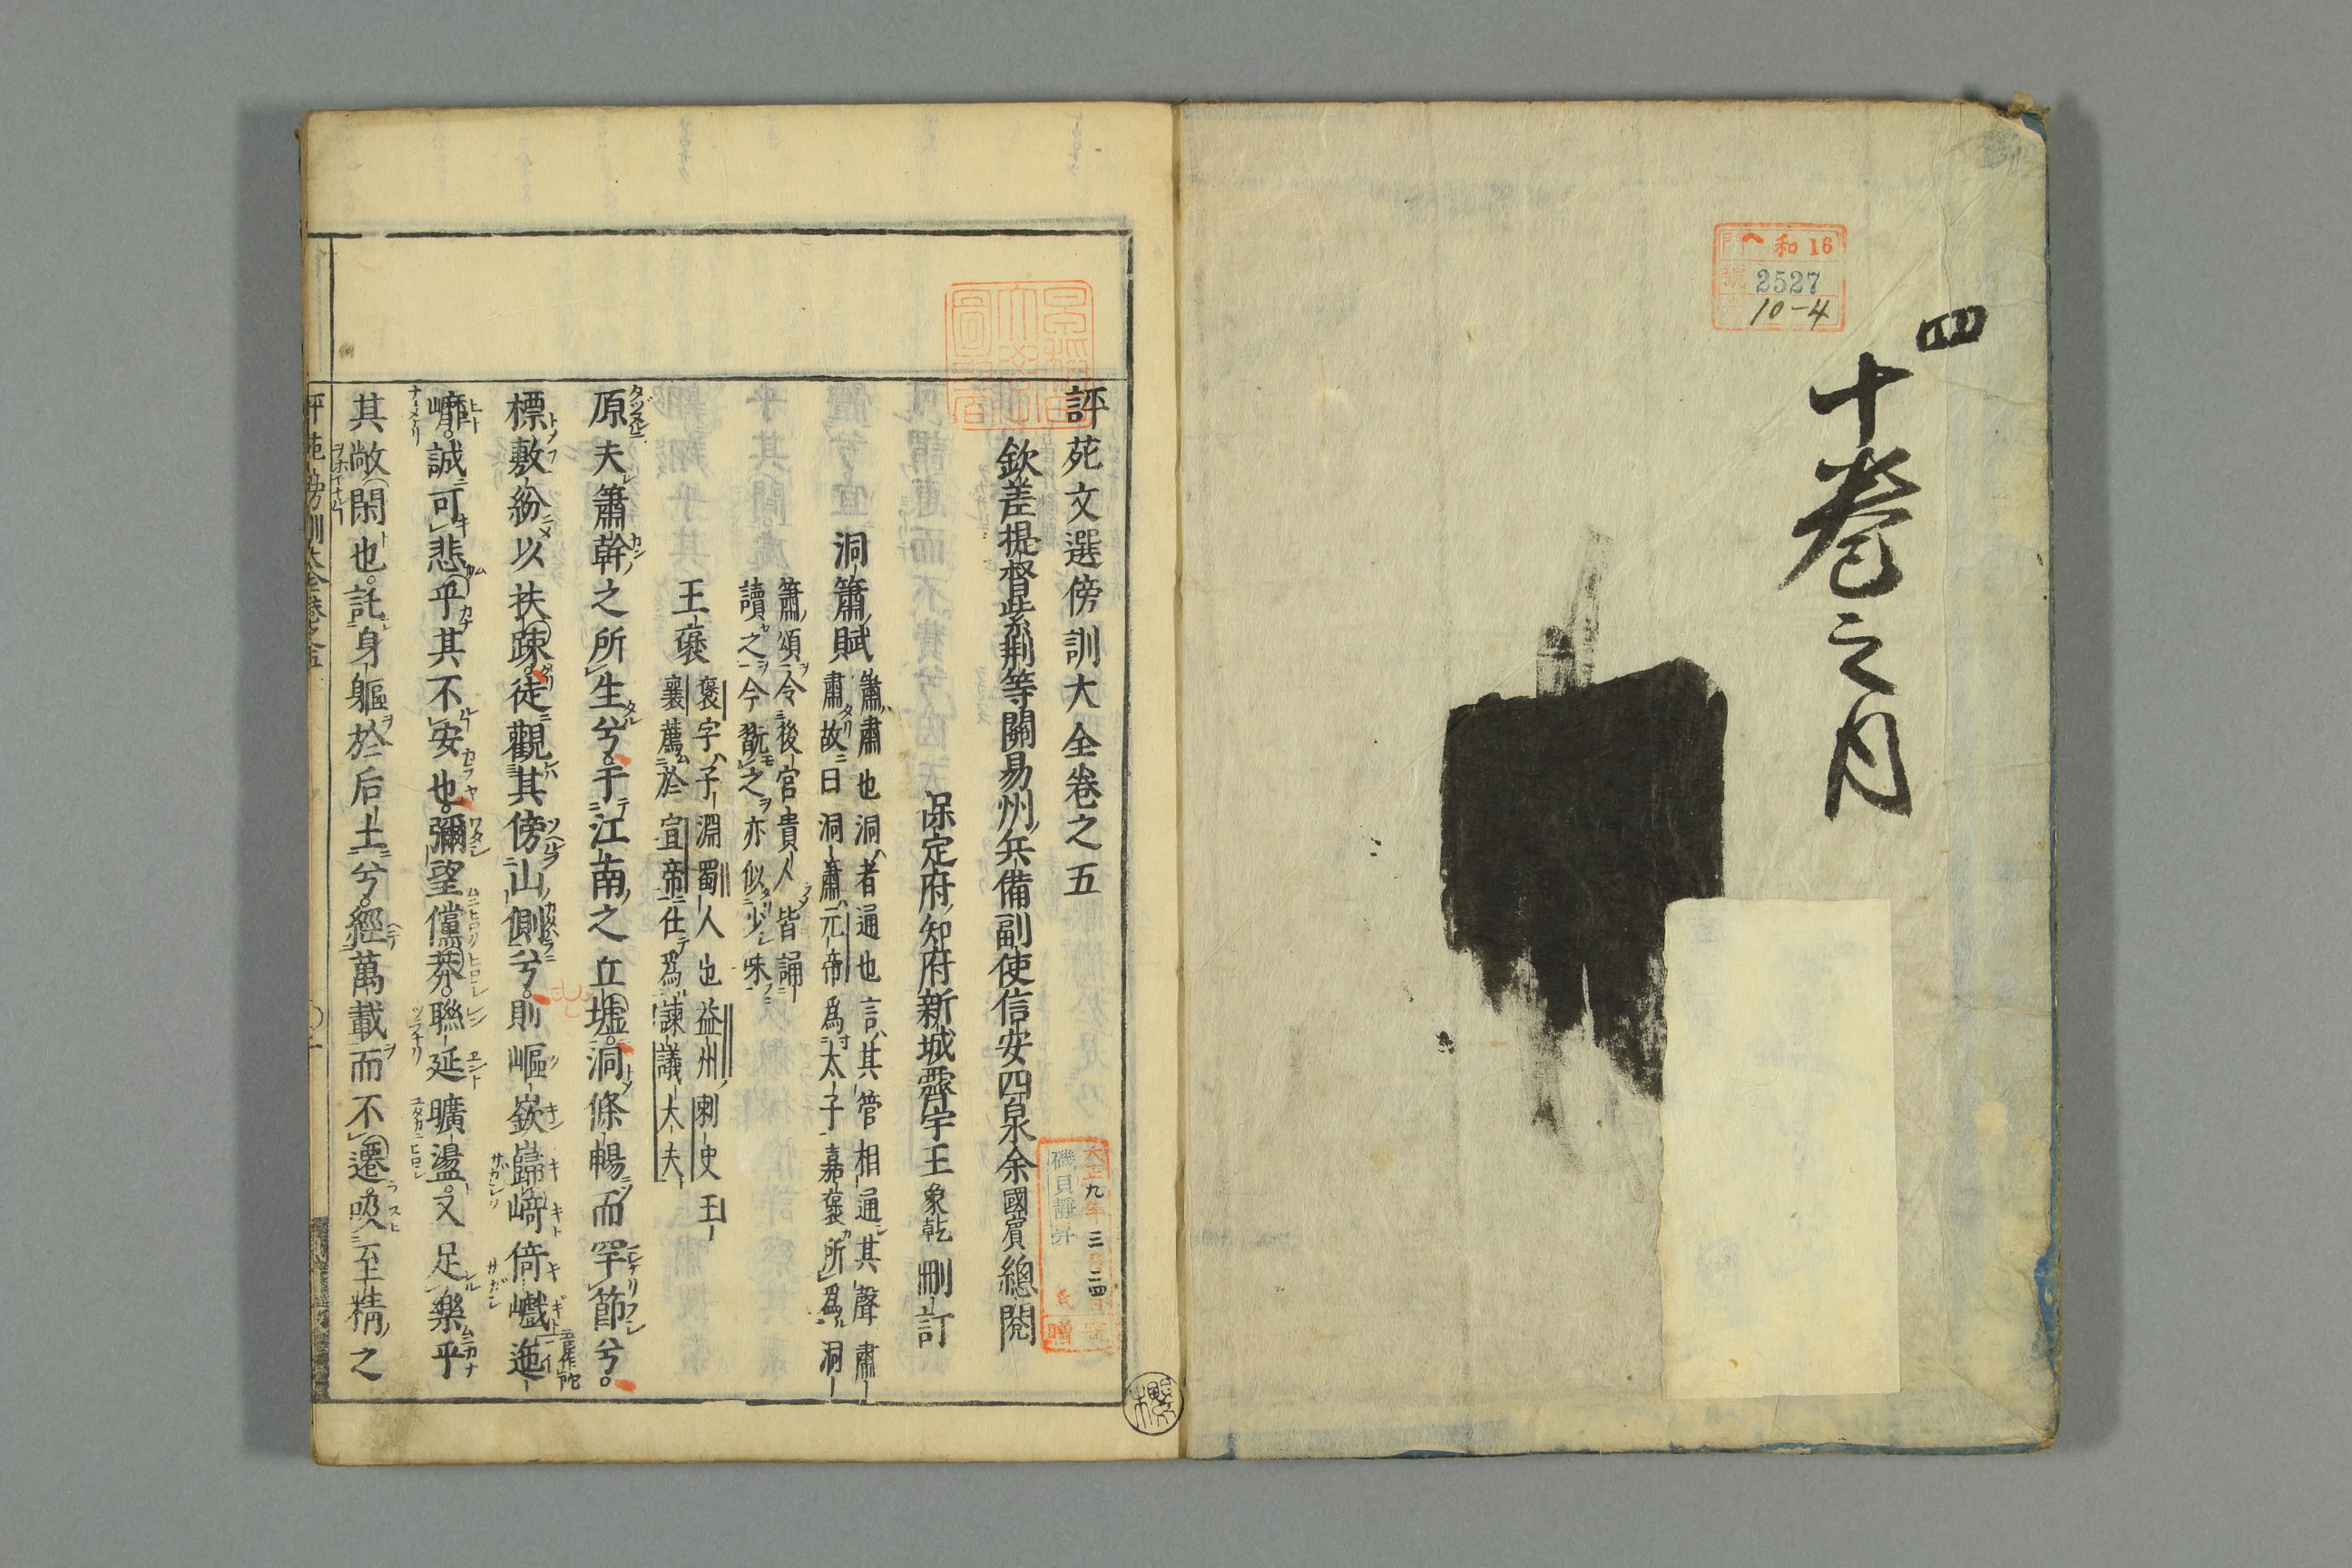 四
十巻之内
門 ヘ 和 16
號 2527
10-4
評苑文選傍訓大全卷之五
欽差提督紫荆等關易州兵備副使信安四泉余國賓總閱
保定府知府新城霽宇王象乾刪訂
洞簫賦
簫肅也洞者通也言其管相通其聲肅
肅故曰洞簫元帝爲太子嘉褒所爲洞
簫頌令後宮貴人皆誦
讀之今翫之亦似少味
王褒
褒字子淵蜀人也益州刺史王
襄薦於宣帝仕爲諫議大夫
原夫簫幹之所生兮于江南之丘墟洞條暢而罕節兮
標敷紛以扶踈徒觀其傍山側兮則嶇嶔巋﨑倚巇迤
㠢誠可悲乎其不安也彌望儻莽聯延曠盪又足樂乎
其敞閑也託身軀於后土兮經萬載而不遷吸至精之
大正九年三月二四日
磯貝靜昇
氏
贈
櫻